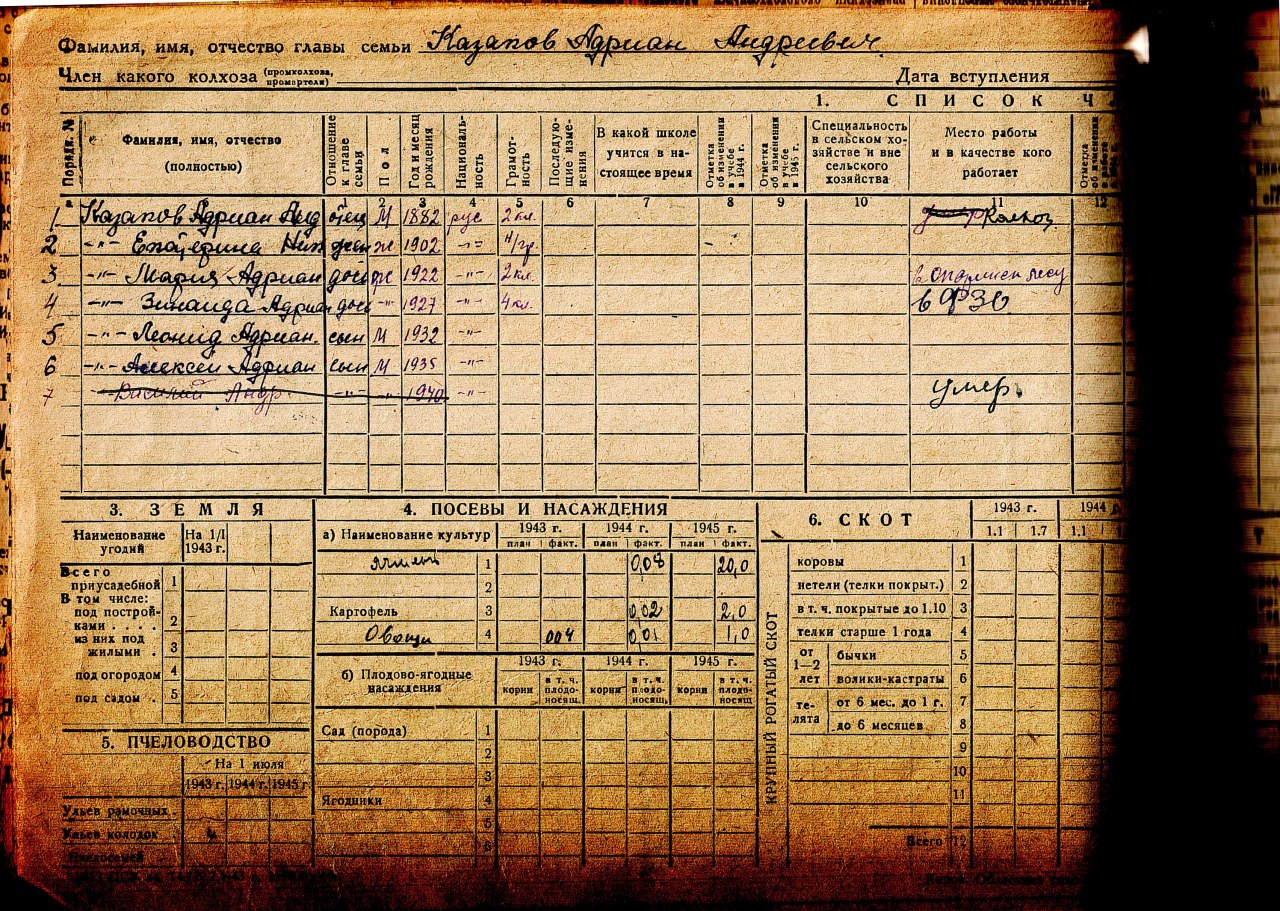 Фамилия, имя, отчество главы семьи Казаков Адриан Андреевич
Член какого колхоза (промколхоза, промартели) Дата вступления
1. СПИСОК Ч
Порядк. №
Фамилия, имя, отчество (полностью)
Отношение к главе семьи
Пол
Год и месяц рождения
Национальность
Грамотность
Последующие изменения
В какой школе учится в настоящее время
Отметка об изменении в учебе в 1944 г.
Отметка об изменении в учебе в 1945 г.
Специальность в сельском хозяйстве и вне сельского хозяйства
Место работы и в качестве кого работает
Отметка об изменении
2 3 4 5 6 7 8 9 10 11 12
1 Казаков Адриан Анд отец М 1882 рус 2 кл. Колхоз
2 -"- Екатерина Ник жен ж 1902 -"- н/гр.
3 -"- Мария Адриан доч ж 1922 -"- 2 кл. в лесу
4 -"- Зинаида Адриан доч -"- 1927 -"- 4 кл. в ФЗО
5 -"- Леонид Адриан. сын М 1932 -"-
6 -"- Алексей Адриан сын М 1935 -"-
7 -"- Василий Андр. -"- -"- 1940 -"- умер.
3. ЗЕМЛЯ
Наименование угодий
На 1/I 1943 г.
Всего приусадебной 1
В том числе:
под постройками . . . . 2
из них под жилыми . 3
под огородом 4
под садом . 5
4. ПОСЕВЫ И НАСАЖДЕНИЯ
а) Наименование культур 1943 г. 1944 г. 1945 г.
план факт. план факт. план факт.
Ячмень 1 0,08 20,0
2
Картофель 3 0,02 2,0
Овощи 4 004 0,01 1,0
б) Плодово-ягодные насаждения
1943 г. 1944 г. 1945 г.
корни в т. ч. плодоносящ. корни в т. ч. плодоносящ. корни в т. ч. плодоносящ
Сад (порода) 1
2
3
Ягодники 4
5
6
5. ПЧЕЛОВОДСТВО
На 1 июля
1943 г. 1944 г. 1945 г
Ульев рамочных .
Ульев колодок
6. СКОТ 1943 г. 1944
1.1 1.7 1.1
КРУПНЫЙ РОГАТЫЙ СКОТ
коровы 1
нетели (телки покрыт.) 2
в т. ч. покрытые до 1.10 3
телки старше 1 года 4
от 1—2 лет
бычки 5
волики-кастраты 6
телята
от 6 мес. до 1 г. 7
до 6 месяцев 8
9
10
11
Всего 12